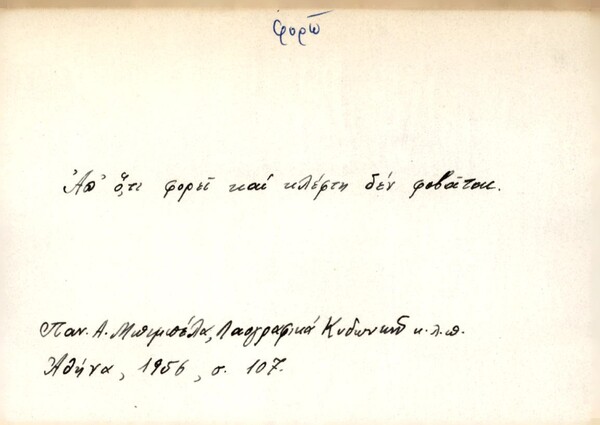 φορῶ
Ἀπ' ὅ,τι φορεῖ καί κλέφτη δέν φοβᾶται.
Παν. Α. Μπιμπέλα, Λαογραφικά Κυδωνιῶν κ.λ.π.
Ἀθήνα, 1956, σ. 107.